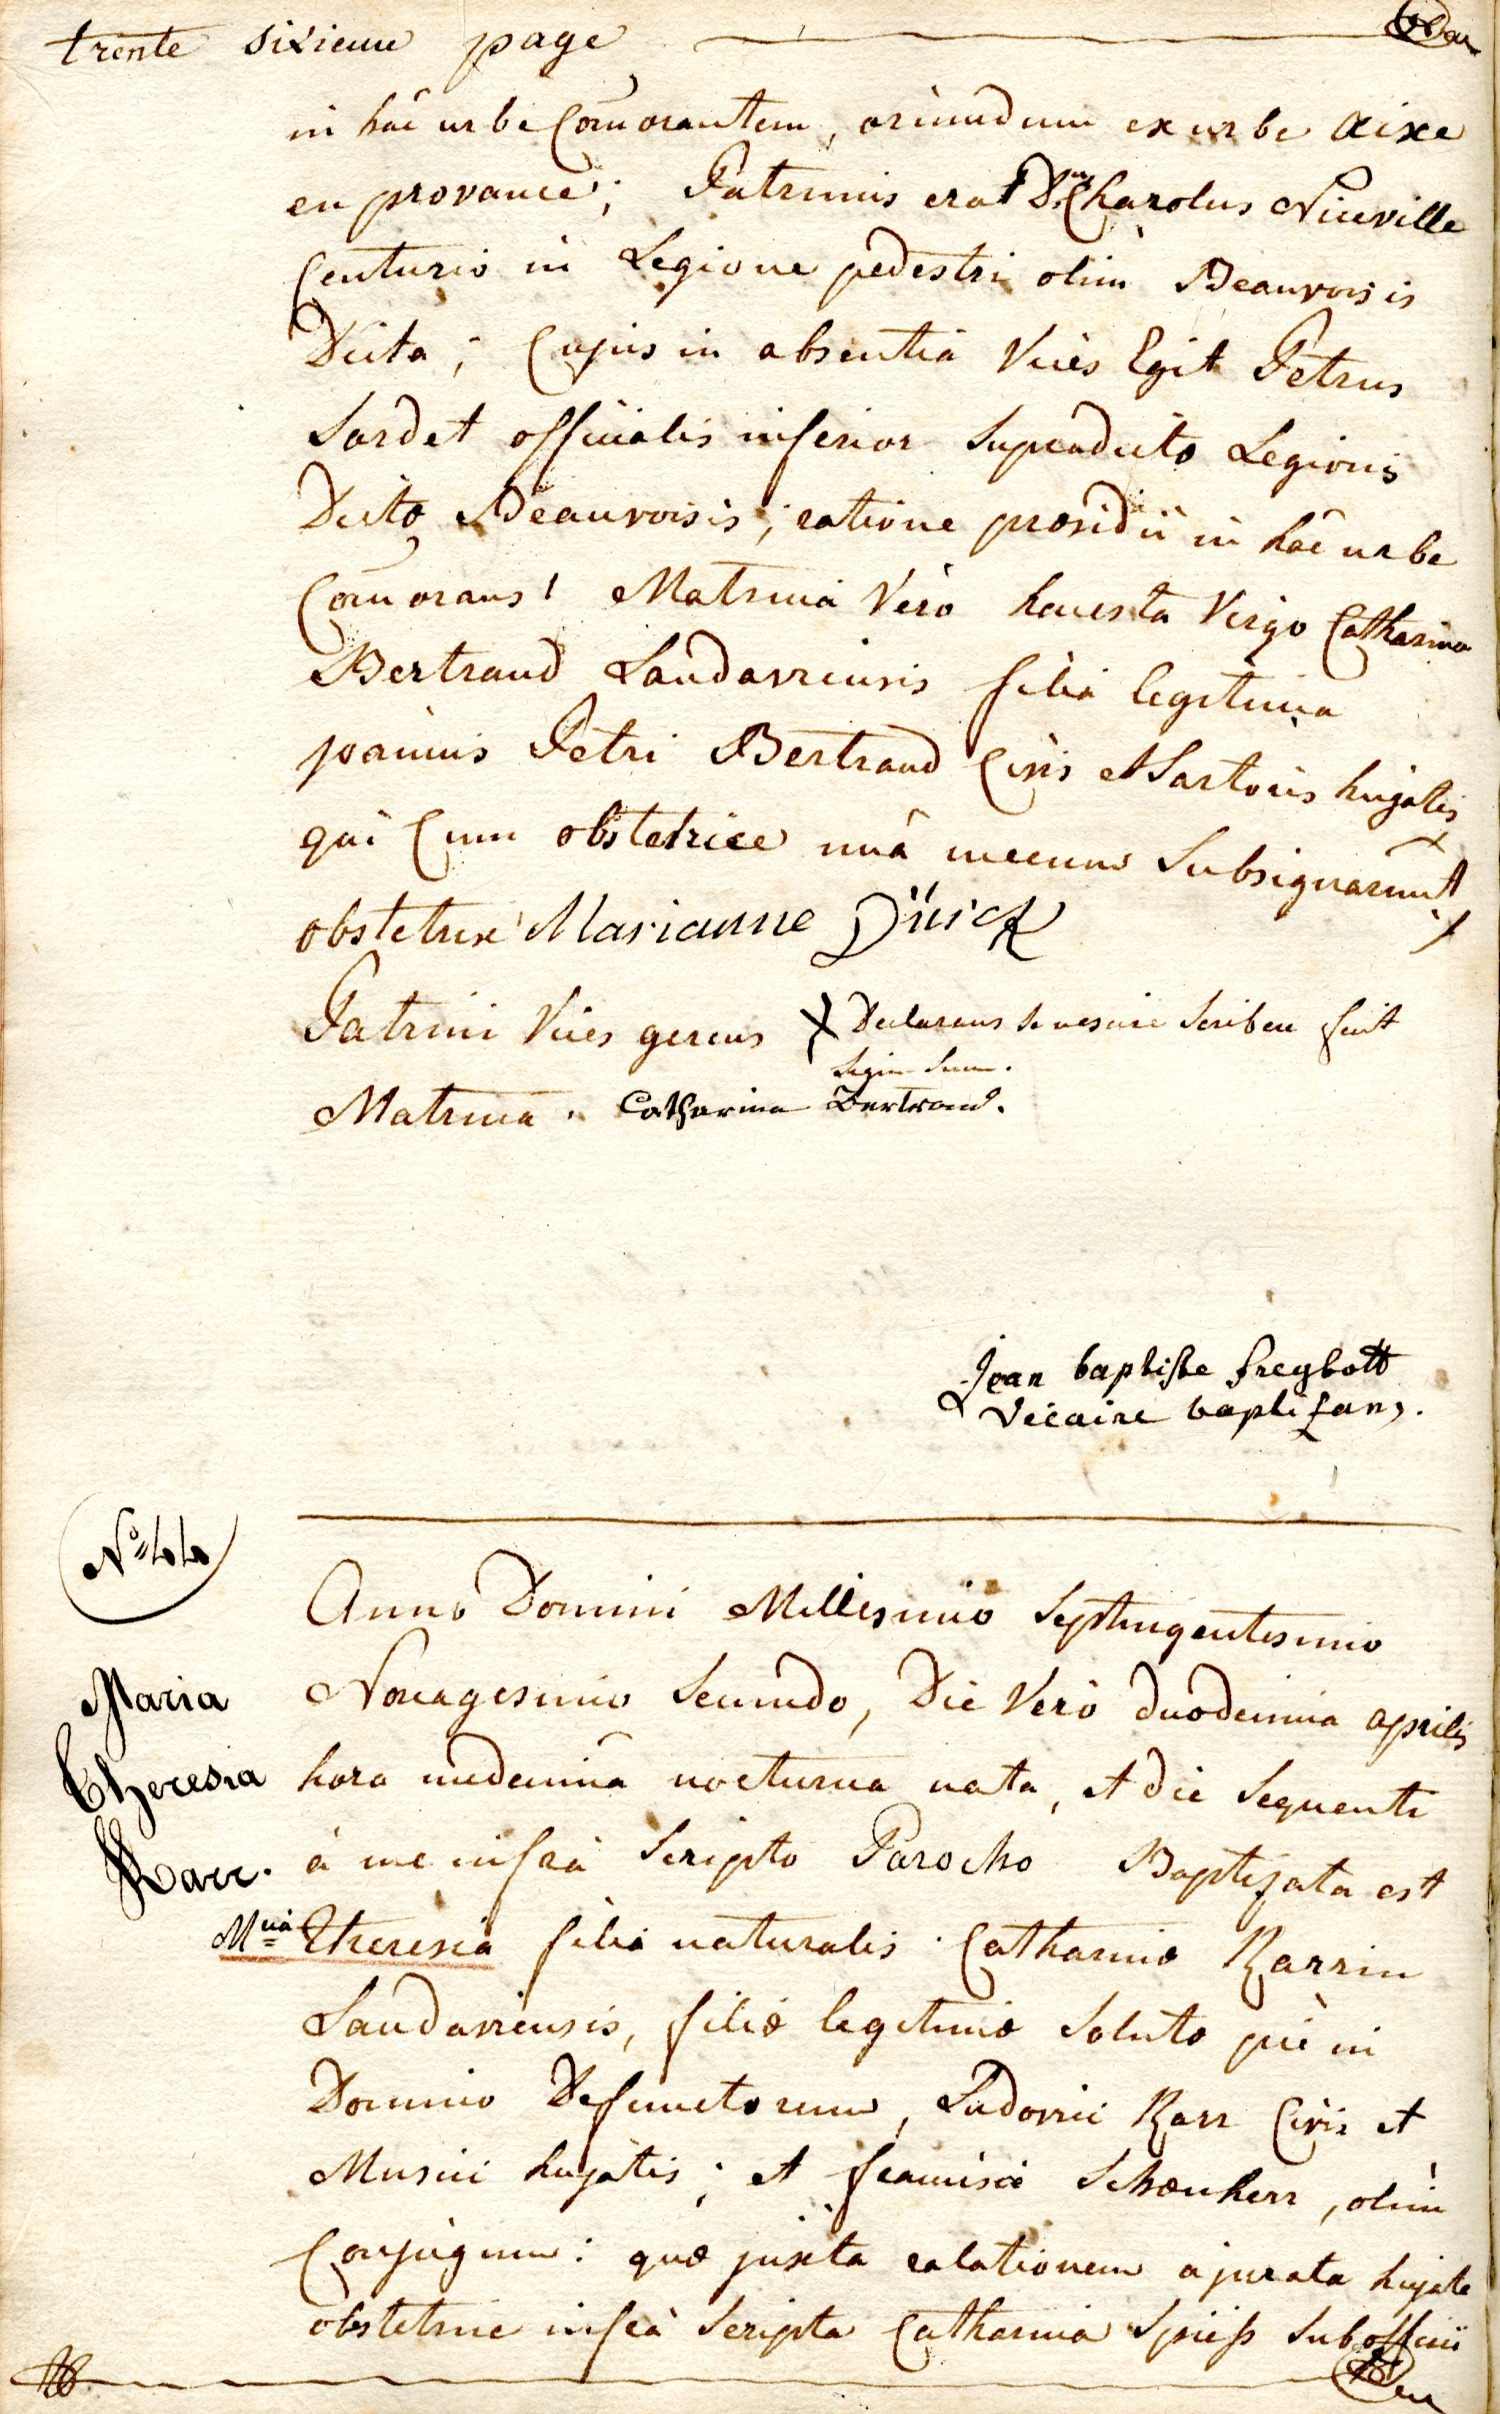 trente sixieme page
in hâc urbe Com̄orantem, oriundum ex urbe aixe
en provance; Patrinus erat D.nus Charolus Niceville
Centurio in Legione pedestri olim Beauvoisis
Dicta; Cujus in absentia Vices Egit Petrus
Sardet officialis inferior Supradictæ Legionis
Dictæ Beauvoisis; ratione præsidii in hâc urbe
Com̄orans! Matrina Vero honesta Virgo Catharina
Bertrand Landaviensis filia legitima
joannis Petri Bertrand Civis et Sartoris hujatis
qui Cum obstetrice unâ mecum Subsignarunt
obstetrix Marianne Dürck
Patrini Vices gerens X Declarans se nescire Scribere fecit
Signum Suum.
Matrina. Catharina Bertrand.
Jean baptiste freybott
Vicaire baptizans.
N° 44
Anno Domini Millesimo Septingentesimo
Nonagesimo Secundo, Die Vero duodecima aprilis
Maria
Theresia
Karr.
hora undecima nocturna nata, et die Sequenti
à me infrà Scripto Parocho Baptizata est
M.ria Theresia filia naturalis Catharinæ Karrin
Landaviensis, filiæ legitimæ Solutæ piè in
Domino Defunctorum, Ludovici Karr Civis et
Musici hujatis; et franciscæ Schœnherr, olim
Conjugum: quæ juxta relationem a jurata hujate
obstetrice infrà Scripta Catharina Spieß Sub officii